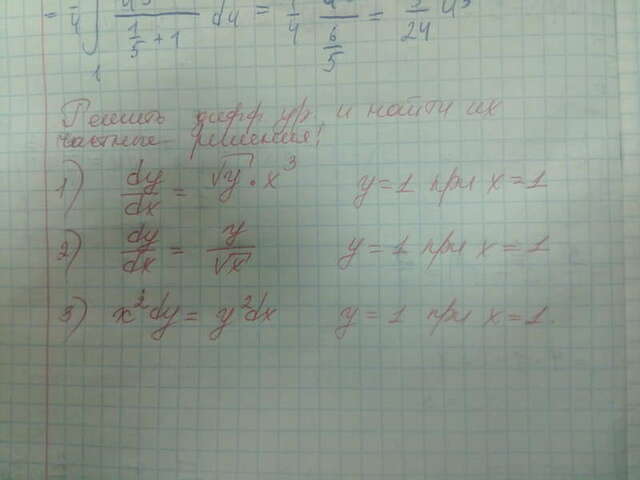 = 1/4 ∫ / (1/5 + 1) du = 1/4 / (6/5) = 5/24 u
1
Решить дифф ур. и найти их
частные решения!
1) dy/dx = √y · x³ y = 1 при x = 1
2) dy/dx = y/√x y = 1 при x = 1
3) x²dy = y²dx y = 1 при x = 1.